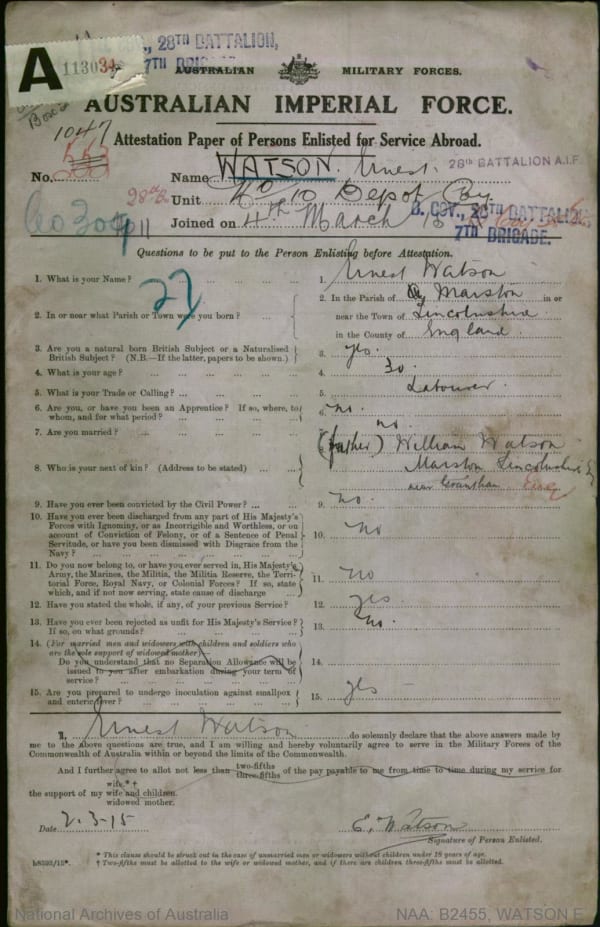 A
113034
28TH BATTALION,
7TH BRIGADE
AUSTRALIAN MILITARY FORCES.
AUSTRALIAN IMPERIAL FORCE.
Attestation Paper of Persons Enlisted for Service Abroad.
1047
No. Name WATSON Ernest.
28TH BATTALION A.I.F.
Unit No 10 Depot Coy
Joined on 4th March 15
B. COY., 28TH BATTALION
7TH BRIGADE.
Questions to be put to the Person Enlisting before Attestation.
27
1. What is your Name? 1. Ernest Watson
2. In or near what Parish or Town were you born? 2. In the Parish of Marston in or
near the Town of Lincolnshire
in the County of England.
3. Are you a natural born British Subject or a Naturalised British Subject? (N.B.—If the latter, papers to be shown.) 3. yes.
4. What is your age? 4. 30.
5. What is your Trade or Calling? 5. Labourer.
6. Are you, or have you been an Apprentice? If so, where, to whom, and for what period? 6. no.
7. Are you married? no.
8. Who is your next of kin? (Address to be stated) (father) William Watson
Marston Lincolnshire
near Grantham Eng
9. Have you ever been convicted by the Civil Power? 9. no.
10. Have you ever been discharged from any part of His Majesty's
Forces with Ignominy, or as Incorrigible and Worthless, or on
account of Conviction of Felony, or of a Sentence of Penal
Servitude, or have you been dismissed with Disgrace from the
Navy? 10. no
11. Do you now belong to, or have you ever served in, His Majesty's
Army, the Marines, the Militia, the Militia Reserve, the Terri-
torial Force, Royal Navy, or Colonial Forces? If so, state
which, and if not now serving, state cause of discharge 11. no
12. Have you stated the whole, if any, of your previous Service? 12. yes
13. Have you ever been rejected as unfit for His Majesty's Service?
If so, on what grounds? 13. no.
14. (For married men and widowers with children and soldiers who
are the sole support of widowed mother)—
Do you understand that no Separation Allowance will be
issued to you after embarkation during your term of
service? 14.
15. Are you prepared to undergo inoculation against smallpox
and enteric fever? 15. yes
I, Ernest Watson do solemnly declare that the above answers made by
me to the above questions are true, and I am willing and hereby voluntarily agree to serve in the Military Forces of the
Commonwealth of Australia within or beyond the limits of the Commonwealth.
And I further agree to allot not less than two-fifths three-fifths of the pay payable to me from time to time during my service for
wife.*†
the support of my wife and children.
widowed mother.
Date 2.3.15 E. Watson
Signature of Person Enlisted.
* This clause should be struck out in the case of unmarried men or widowers without children under 18 years of age.
† Two-fifths must be allotted to the wife or widowed mother, and if there are children three-fifths must be allotted.
National Archives of Australia NAA: B2455, WATSON E